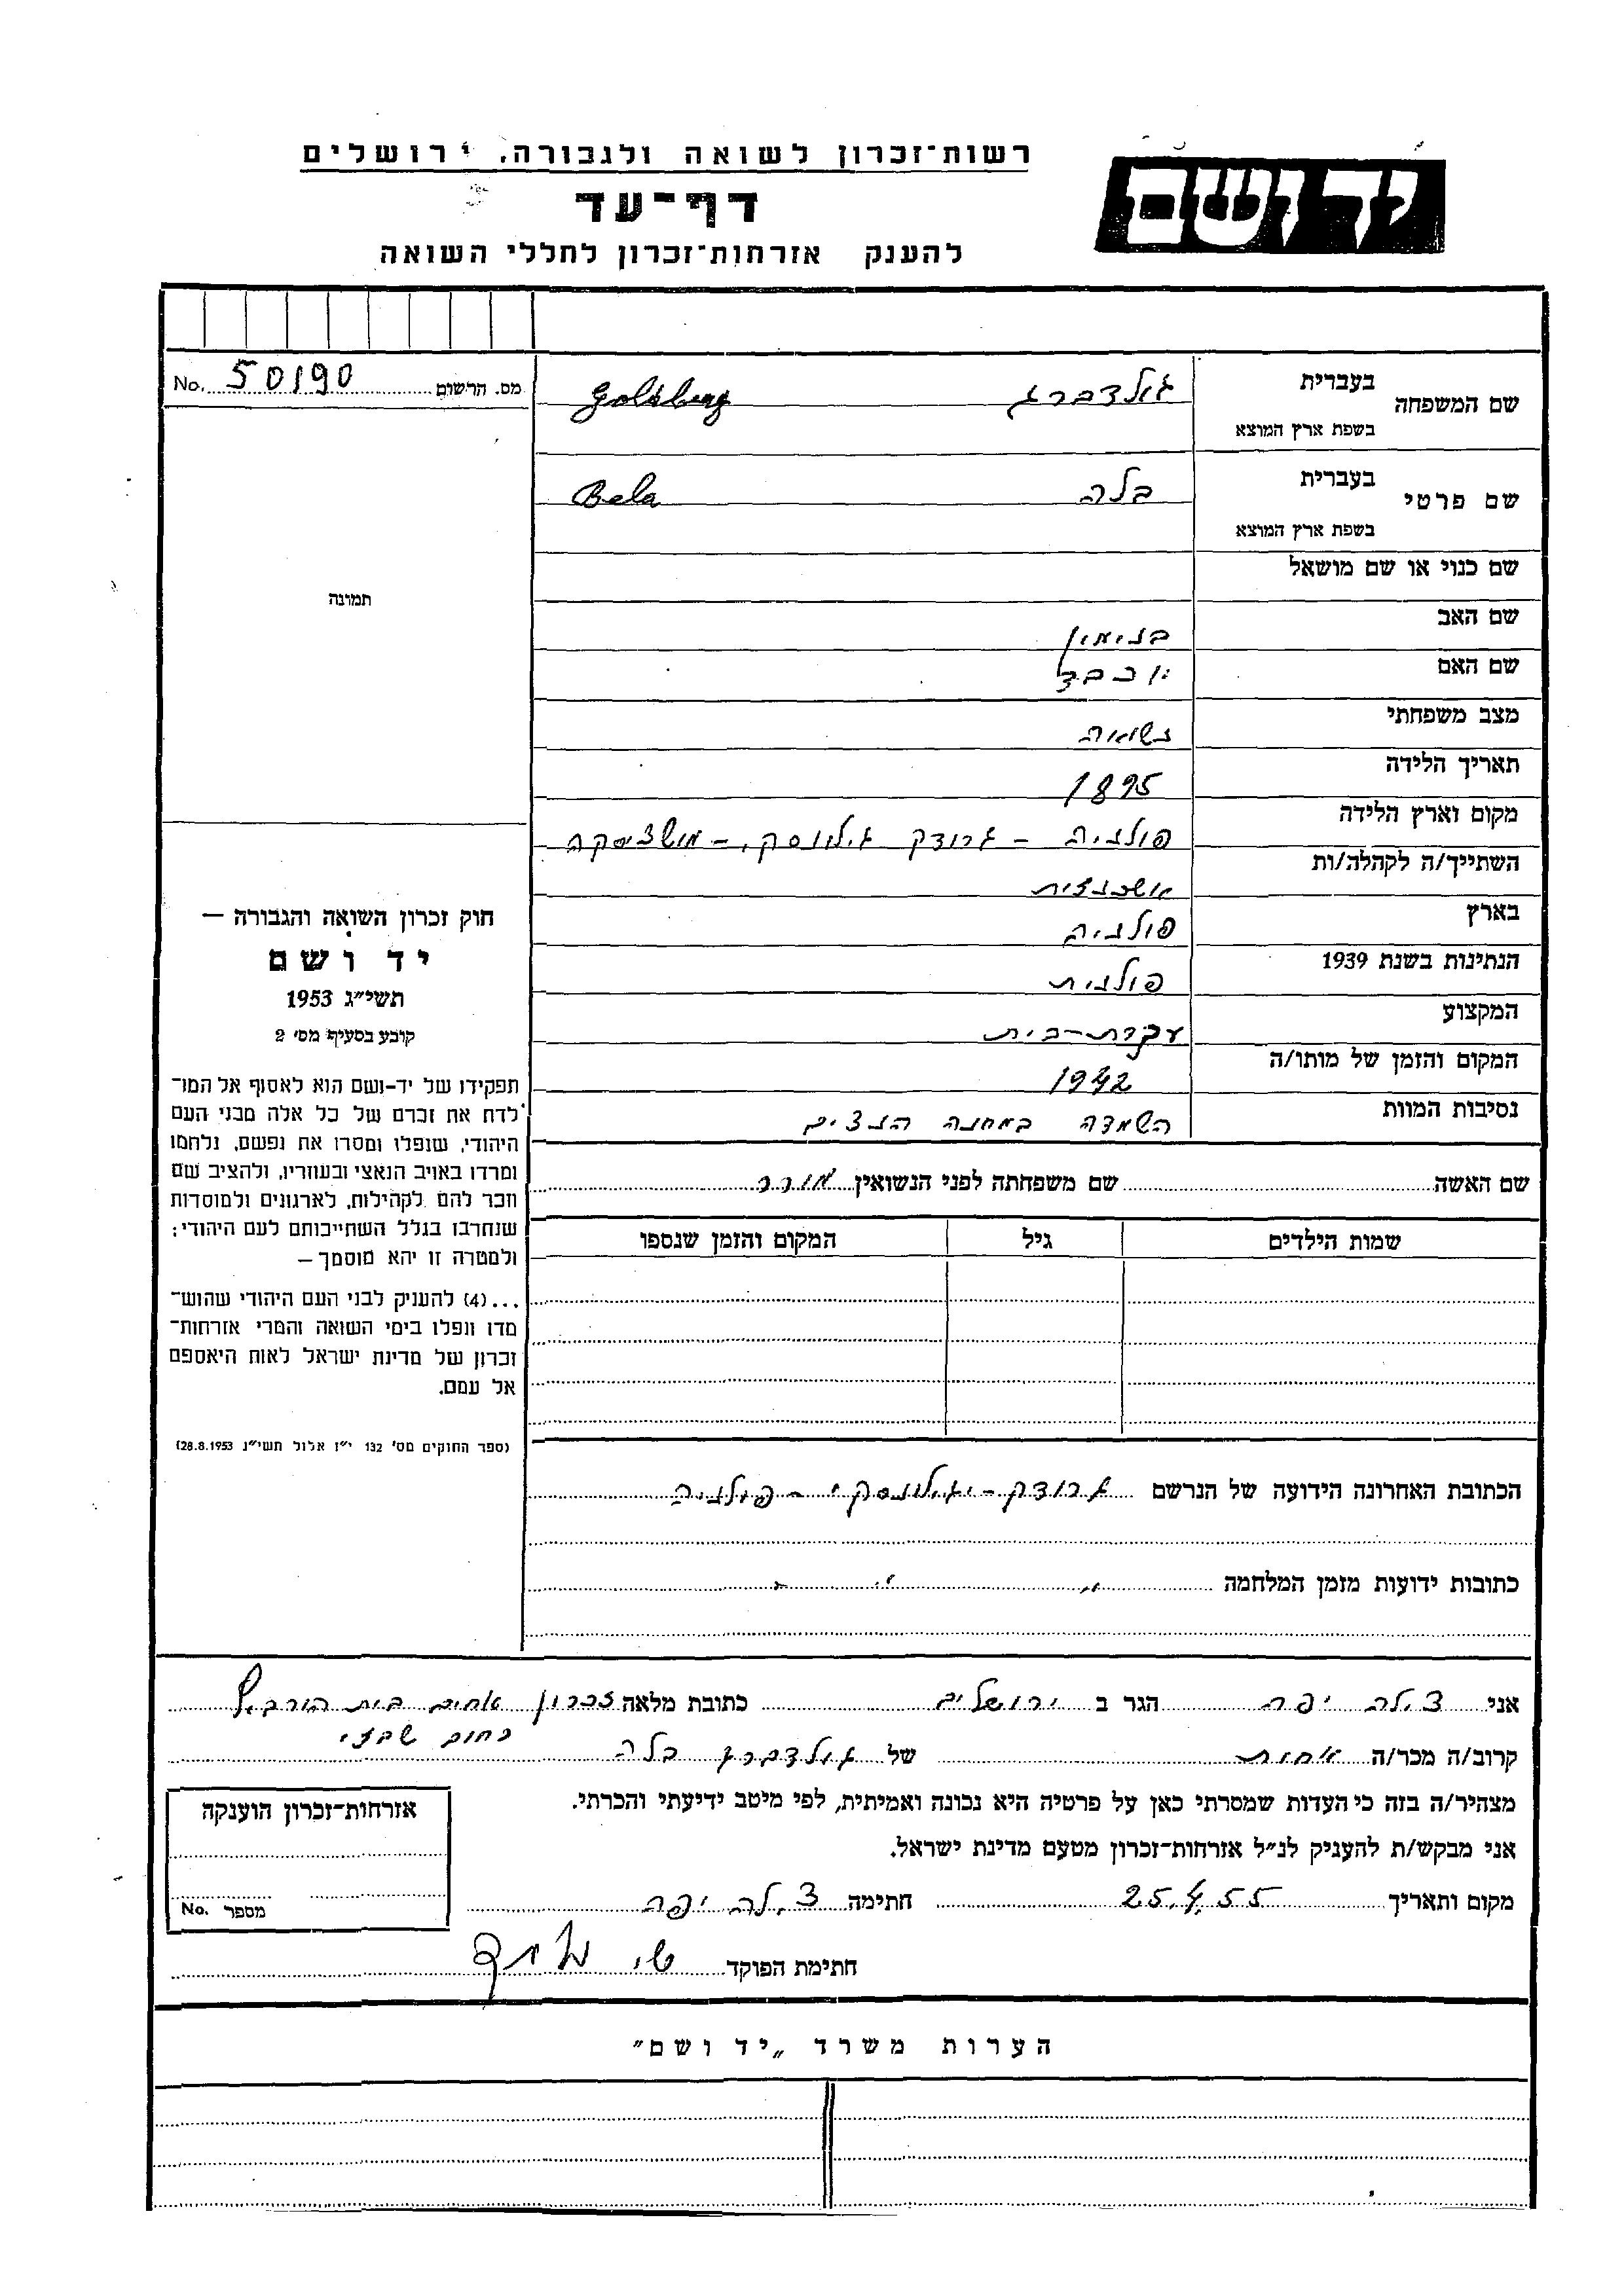 רשות־זכרון לשואה ולגבורה, ירושלים
יד ושם
דף־עד
להענק אזרחות־זכרון לחללי השואה
מס. הרשום 50190 No.
שם המשפחה בעברית גולדברג Goldberg
בשפת ארץ המוצא
שם פרטי בעברית בלה Bela
בשפת ארץ המוצא
שם כנוי או שם מושאל
שם האב בנימין
שם האם יוכבד
מצב משפחתי נשואה
תאריך הלידה 1895
מקום וארץ הלידה פולניה - גרודק יגילונסקי, -
השתייך/ה לקהלה/ות אשכנזית
בארץ פולניה
הנתינות בשנת 1939 פולנית
המקצוע עקרת-בית
המקום והזמן של מותו/ה 1942
נסיבות המוות השמדה במחנה הנצים
שם האשה שם משפחתה לפני הנשואין מורר
שמות הילדים גיל המקום והזמן שנספו
הכתובת האחרונה הידועה של הנרשם גרודק-יגילונסקי - פולניה
כתובות ידועות מזמן המלחמה " " "
תמונה
חוק זכרון השואה והגבורה —
יד ושם
תשי״ג 1953
קובע בסעיף מס׳ 2
תפקידו של יד-ושם הוא לאסוף אל המו־
לדת את זכרם של כל אלה מבני העם
היהודי, שנפלו ומסרו את נפשם, נלחמו
ומרדו באויב הנאצי ובעוזריו, ולהציב שם
וזכר להם לקהילות, לארגונים ולמוסדות
שנחרבו בגלל השתייכותם לעם היהודי;
ולמטרה זו יהא מוסמך —
...(4) להעניק לבני העם היהודי שהוש־
מדו ונפלו בימי השואה והמרי אזרחות־
זכרון של מדינת ישראל לאות היאספם
אל עמם.
(ספר החוקים מס׳ 132 י״ז אלול תשי״ג 28.8.1953)
אני צילה יפה הגר ב ירושלים כתובת מלאה זכרון אחים בית הורביץ
רחוב שבזי
קרוב/ה מכר/ה אחות של גולדברג בלה
מצהיר/ה בזה כי העדות שמסרתי כאן על פרטיה היא נכונה ואמיתית, לפי מיטב ידיעתי והכרתי.
אני מבקש/ת להעניק לנ״ל אזרחות־זכרון מטעם מדינת ישראל.
מקום ותאריך 25.4.55 חתימה צילה יפה
חתימת הפוקד
אזרחות־זכרון הוענקה
מספר No.
הערות משרד „יד ושם״